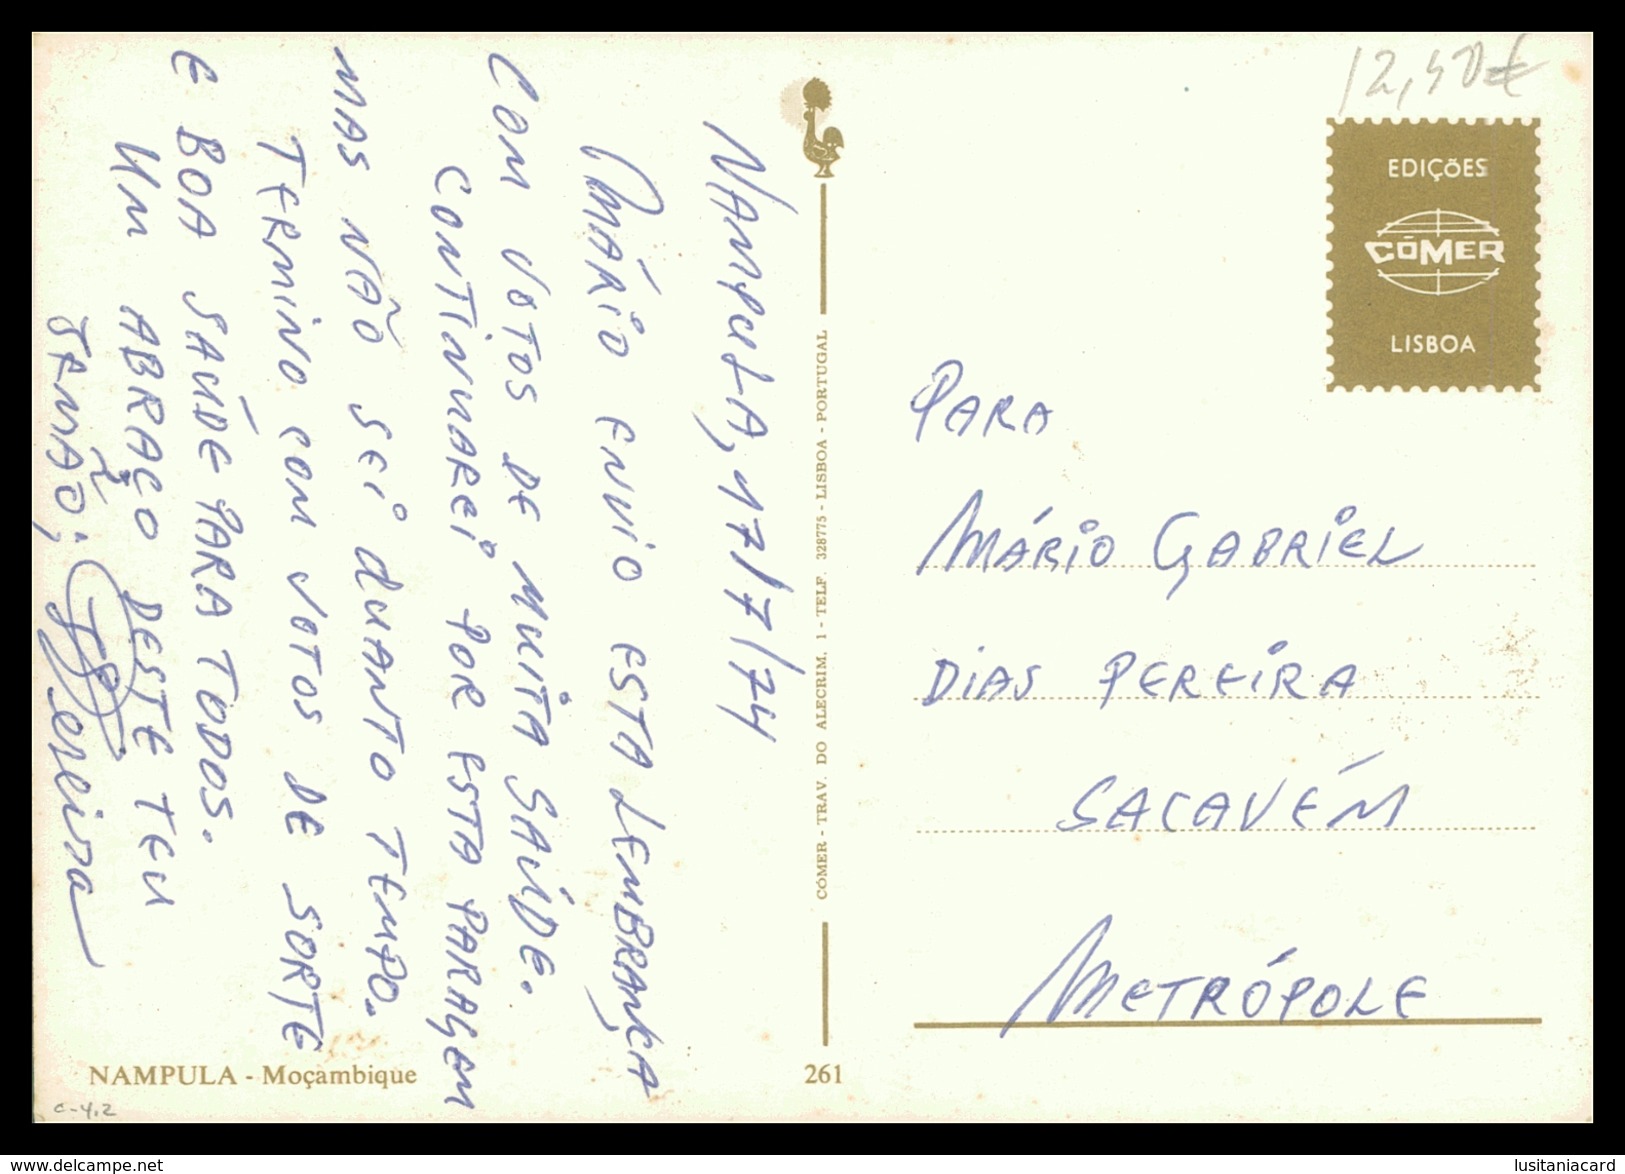 Nampula, 17/7/74
Mário envio esta lembrança
com votos de muita saúde.
Continuarei por esta paragem
mas não sei quanto tempo.
Termino com votos de sorte
e boa saúde para todos.
Um abraço deste teu
irmão; Pereira
NAMPULA - Moçambique
c-4,2
COMER - TRAV. DO ALECRIM, 1 - TELF. 328775 - LISBOA - PORTUGAL
261
12,50€
EDIÇÕES
CÓMER
LISBOA
Para
Mário Gabriel
Dias Pereira
Sacavém
Metrópole
lusitaniacard